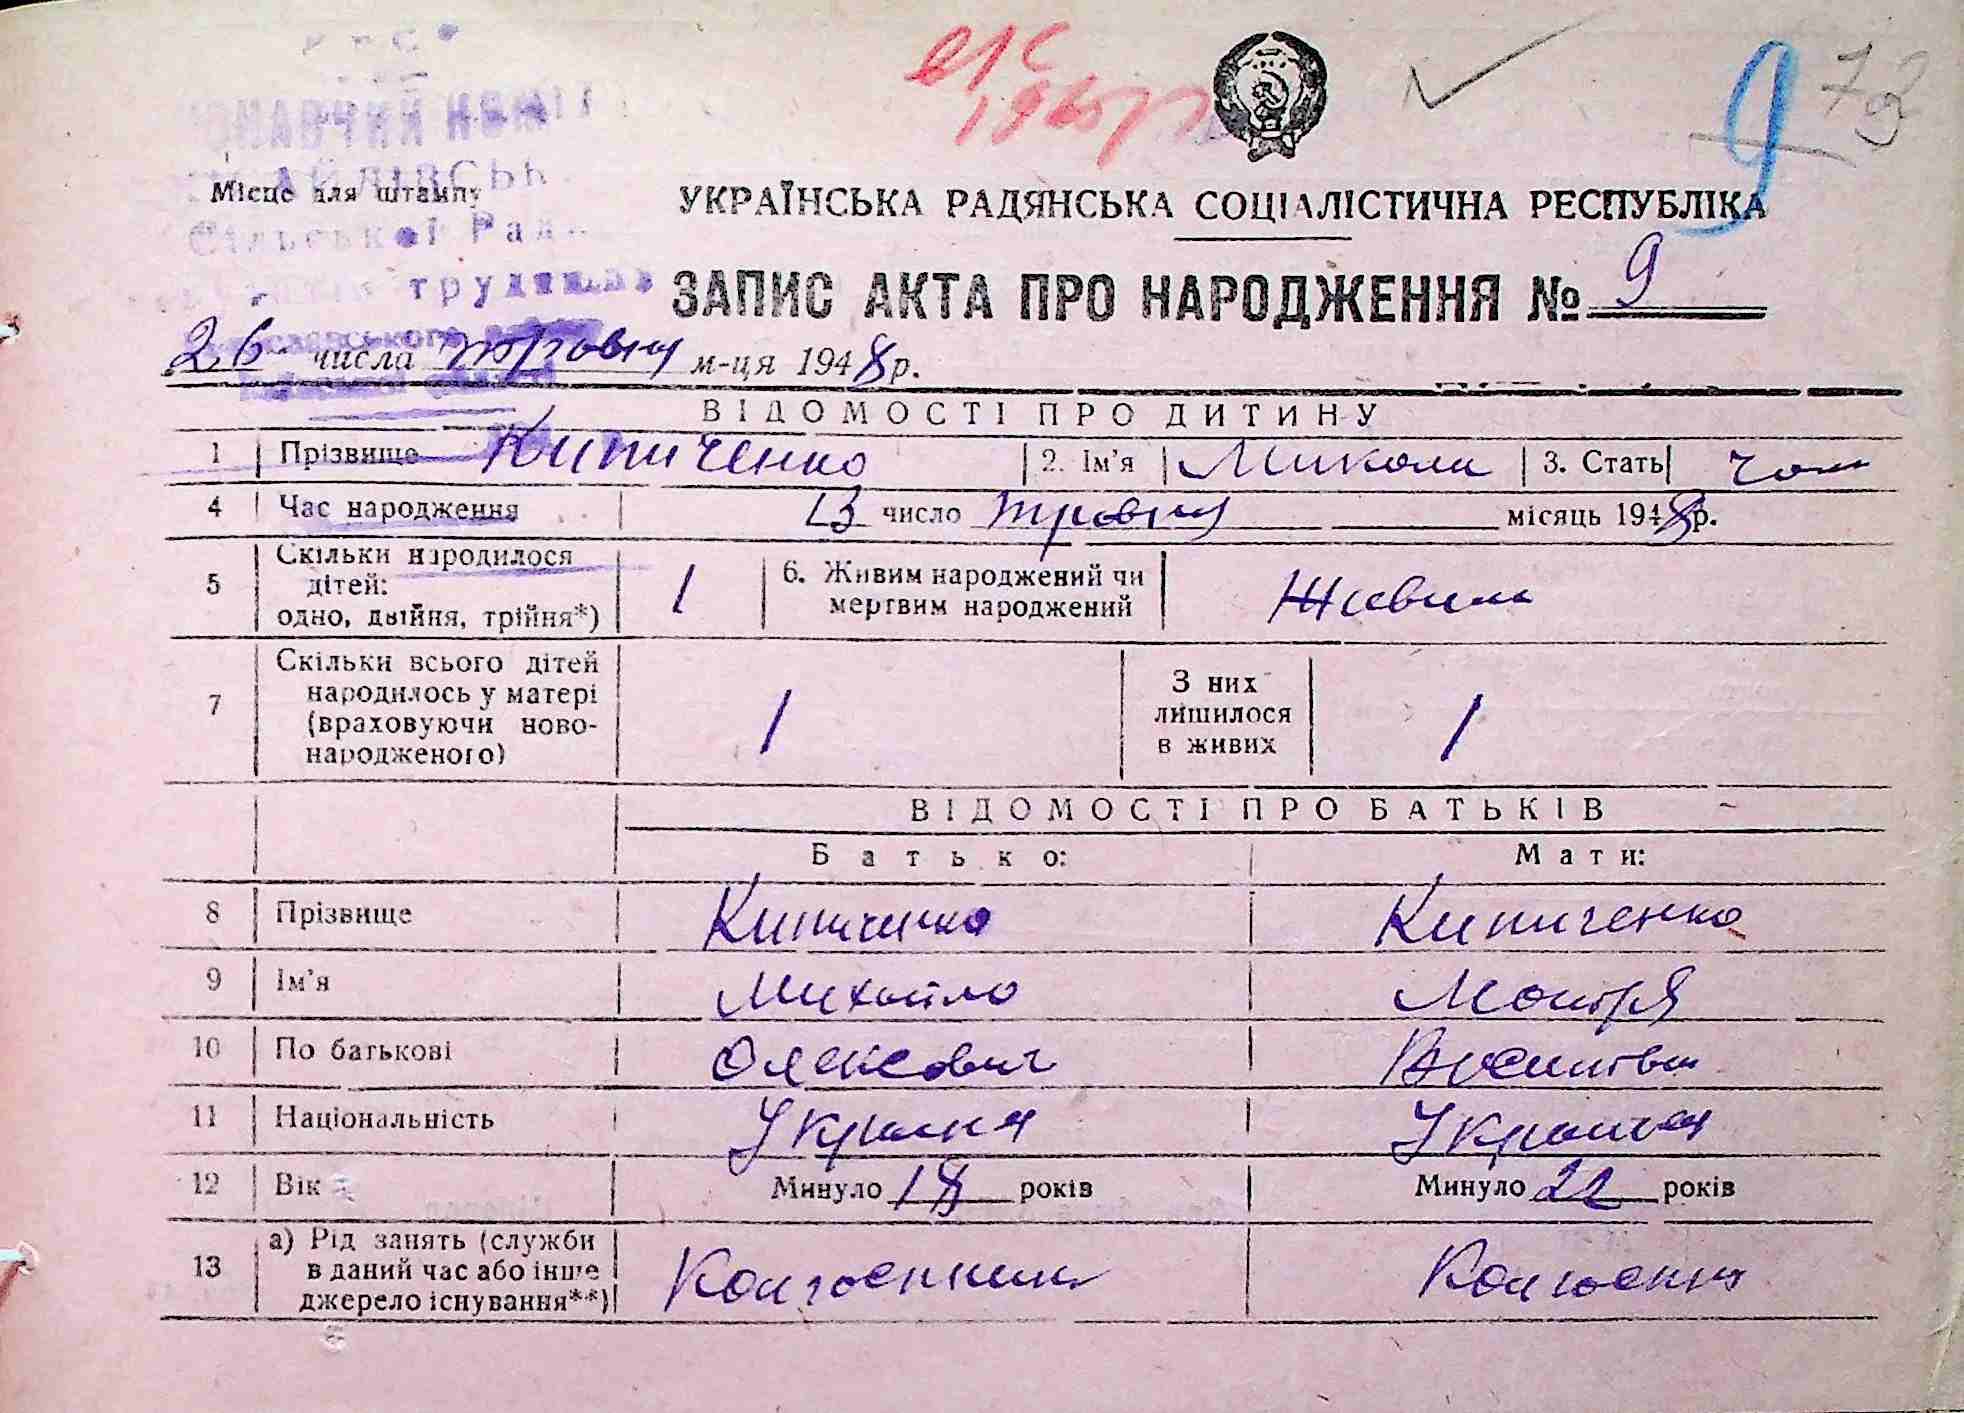 9
Місце для штампу
Сільської Рад
трудящих
УКРАЇНСЬКА РАДЯНСЬКА СОЦІАЛІСТИЧНА РЕСПУБЛІКА
ЗАПИС АКТА ПРО НАРОДЖЕННЯ № 9
26 числа травня м-ця 1948 р.
ВІДОМОСТІ ПРО ДИТИНУ
1 Прізвище Кипиченко 2. Ім'я Микола 3. Стать чол
4 Час народження 13 число травня місяць 1948 р.
5 Скільки народилося дітей: одно, двійня, трійня*) 1 6. Живим народжений чи мертвим народжений Живим
7 Скільки всього дітей народилось у матері (враховуючи ново-народженого) 1 З них лишилося в живих 1
ВІДОМОСТІ ПРО БАТЬКІВ
Батько: Мати:
8 Прізвище Кипиченко Кипиченко
9 Ім'я Михайло Мотря
10 По батькові Олексович Василівна
11 Національність
12 Вік Минуло 18 років Минуло 22 років
13 а) Рід занять (служби в даний час або інше джерело існування**) Колгоспник Колгоспн